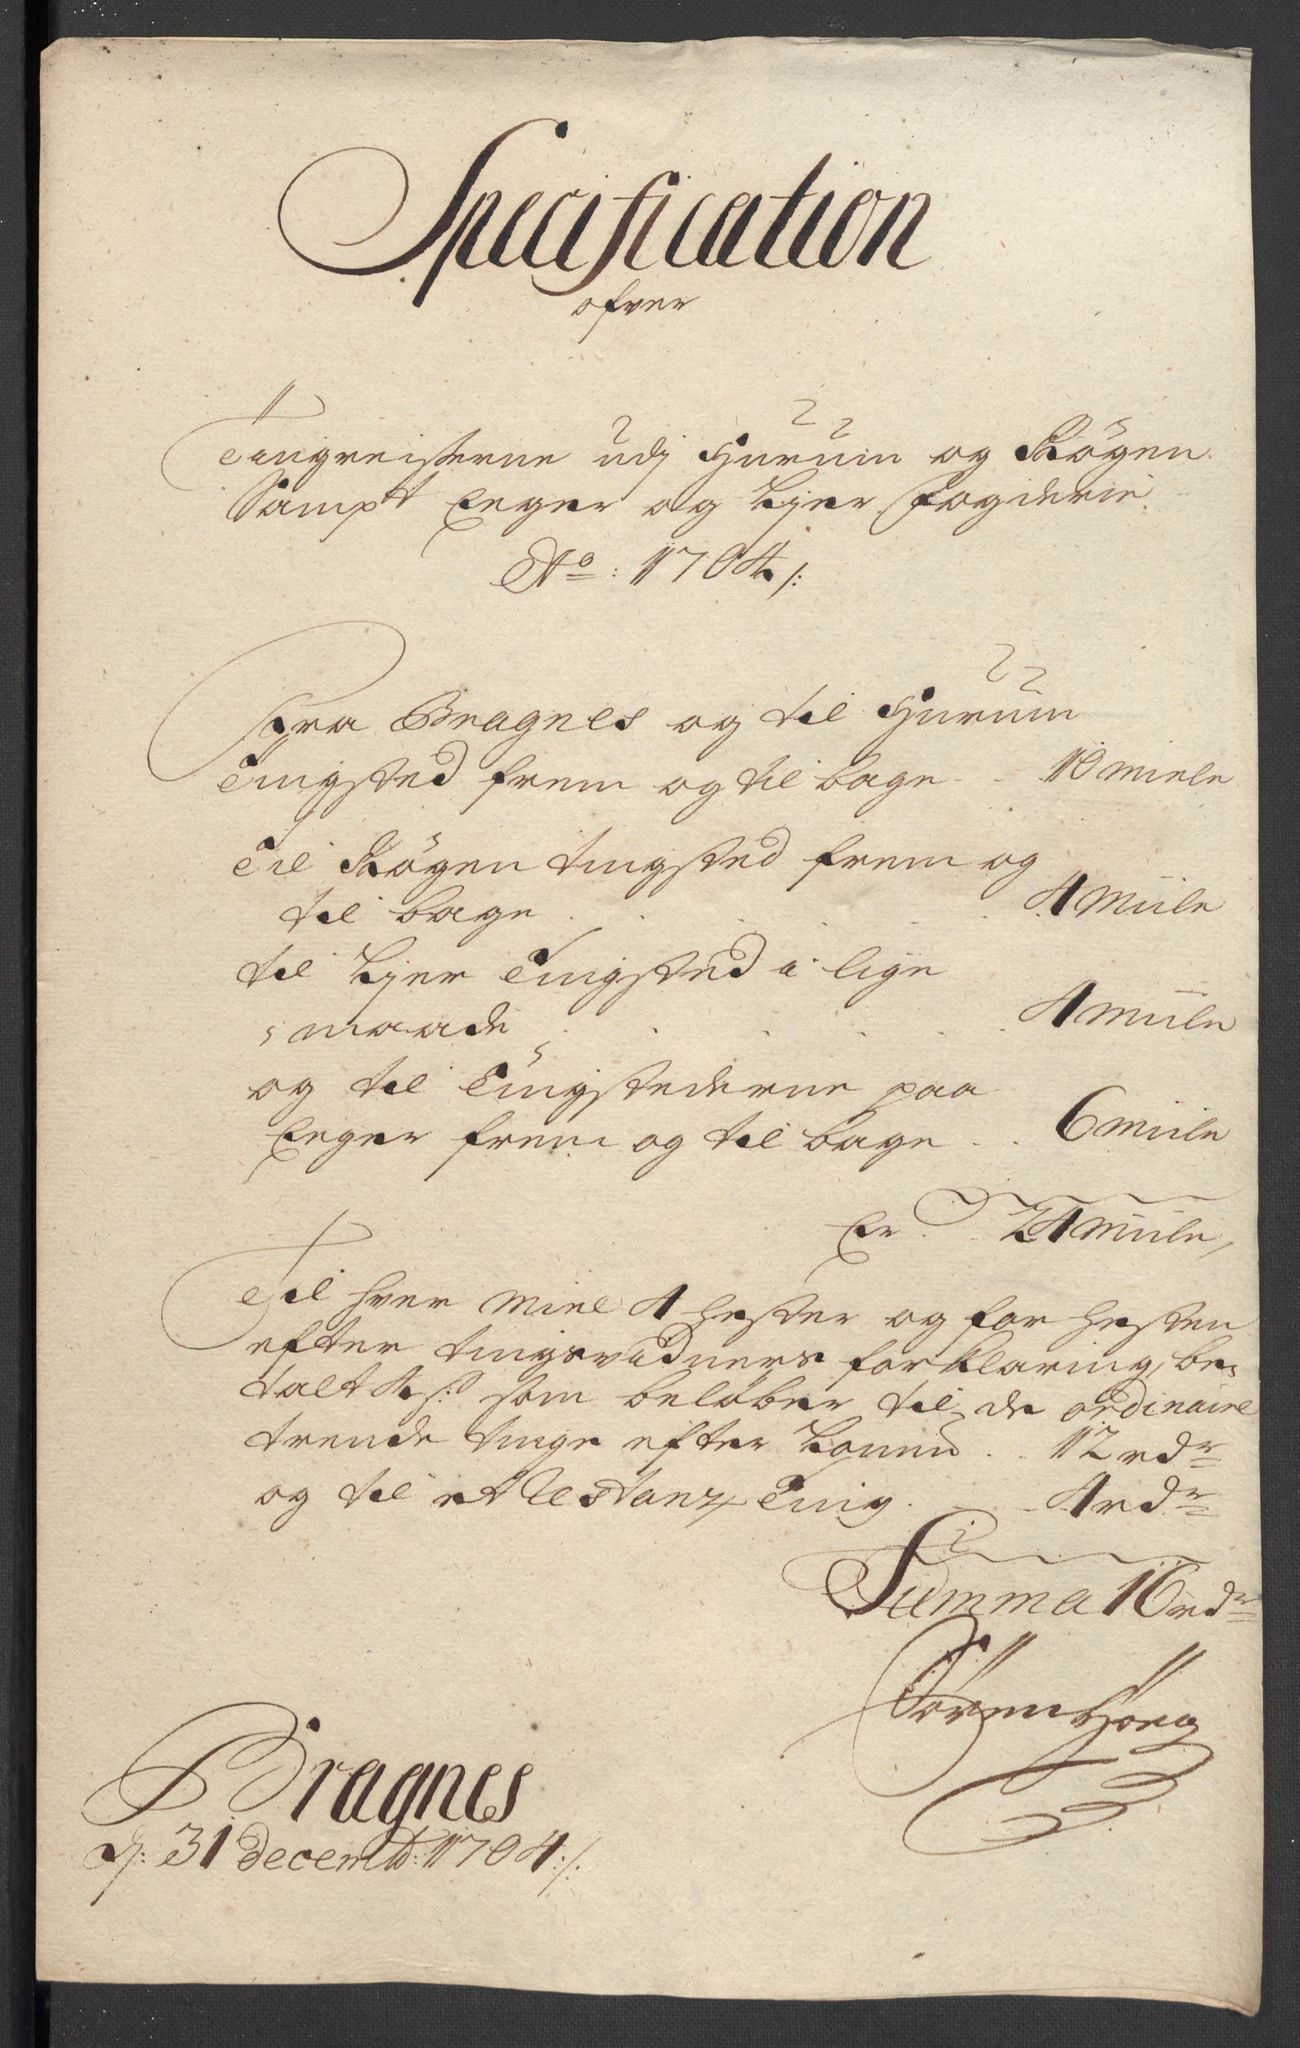 Specification
ofver
Tingreiserne udj Hurum og Røgen
Sampt Eeger og Ljer Fogderie
Ao: 1704/:
Fra Bragnes og til Hurum
Tingsted frem og til bage .. 10 miele
Til Røgen tingsted frem og
til bage . . . . 4 Miile
til Ljer Tingsted i lige
maade . . . . 4 miile
og til Tingstederne paa
Eeger frem og til bage .. 6 miile
Er .. 24 Miile,
Til hver Miel 4 hester og for hesten
efter tingsvidners forklaring, be-
talt 4 s: som beløber til de ordinaire
trende tinge efter Louen .. 12 rdr
og til et Ting . . 4 rdr
Summa 16 rdr
Søren Høeg
Bragnes
d: 31 decemb: 1704:/: